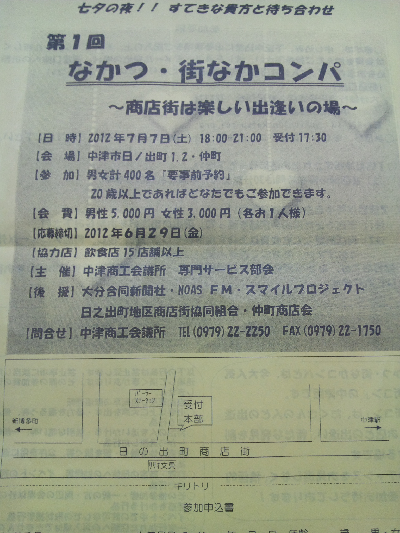 七夕の夜！！ すてきな貴方と待ち合わせ
第1回
なかつ・街なかコンパ
～商店街は楽しい出逢いの場～
【日 時】2012年7月7日(土) 18:00-21:00 受付17:30
【会 場】中津市日ノ出町1.2・仲町
【参 加】男女計400名「要事前予約」
20歳以上であればどなたでもご参加できます。
【会 費】男性5,000円 女性3,000円（各お1人様）
【応募締切】2012年6月29日(金)
【協力店】飲食店15店舗以上
【主 催】中津商工会議所 専門サービス部会
【後 援】大分合同新聞社・NOAS FM・スマイルプロジェクト
日之出町地区商店街協同組合・仲町商店会
【問合せ】中津商工会議所 TEL(0979)22-2250 FAX(0979)22-1750
受付
本部
中津駅
日の出町商店街
キリトリ
参加申込書